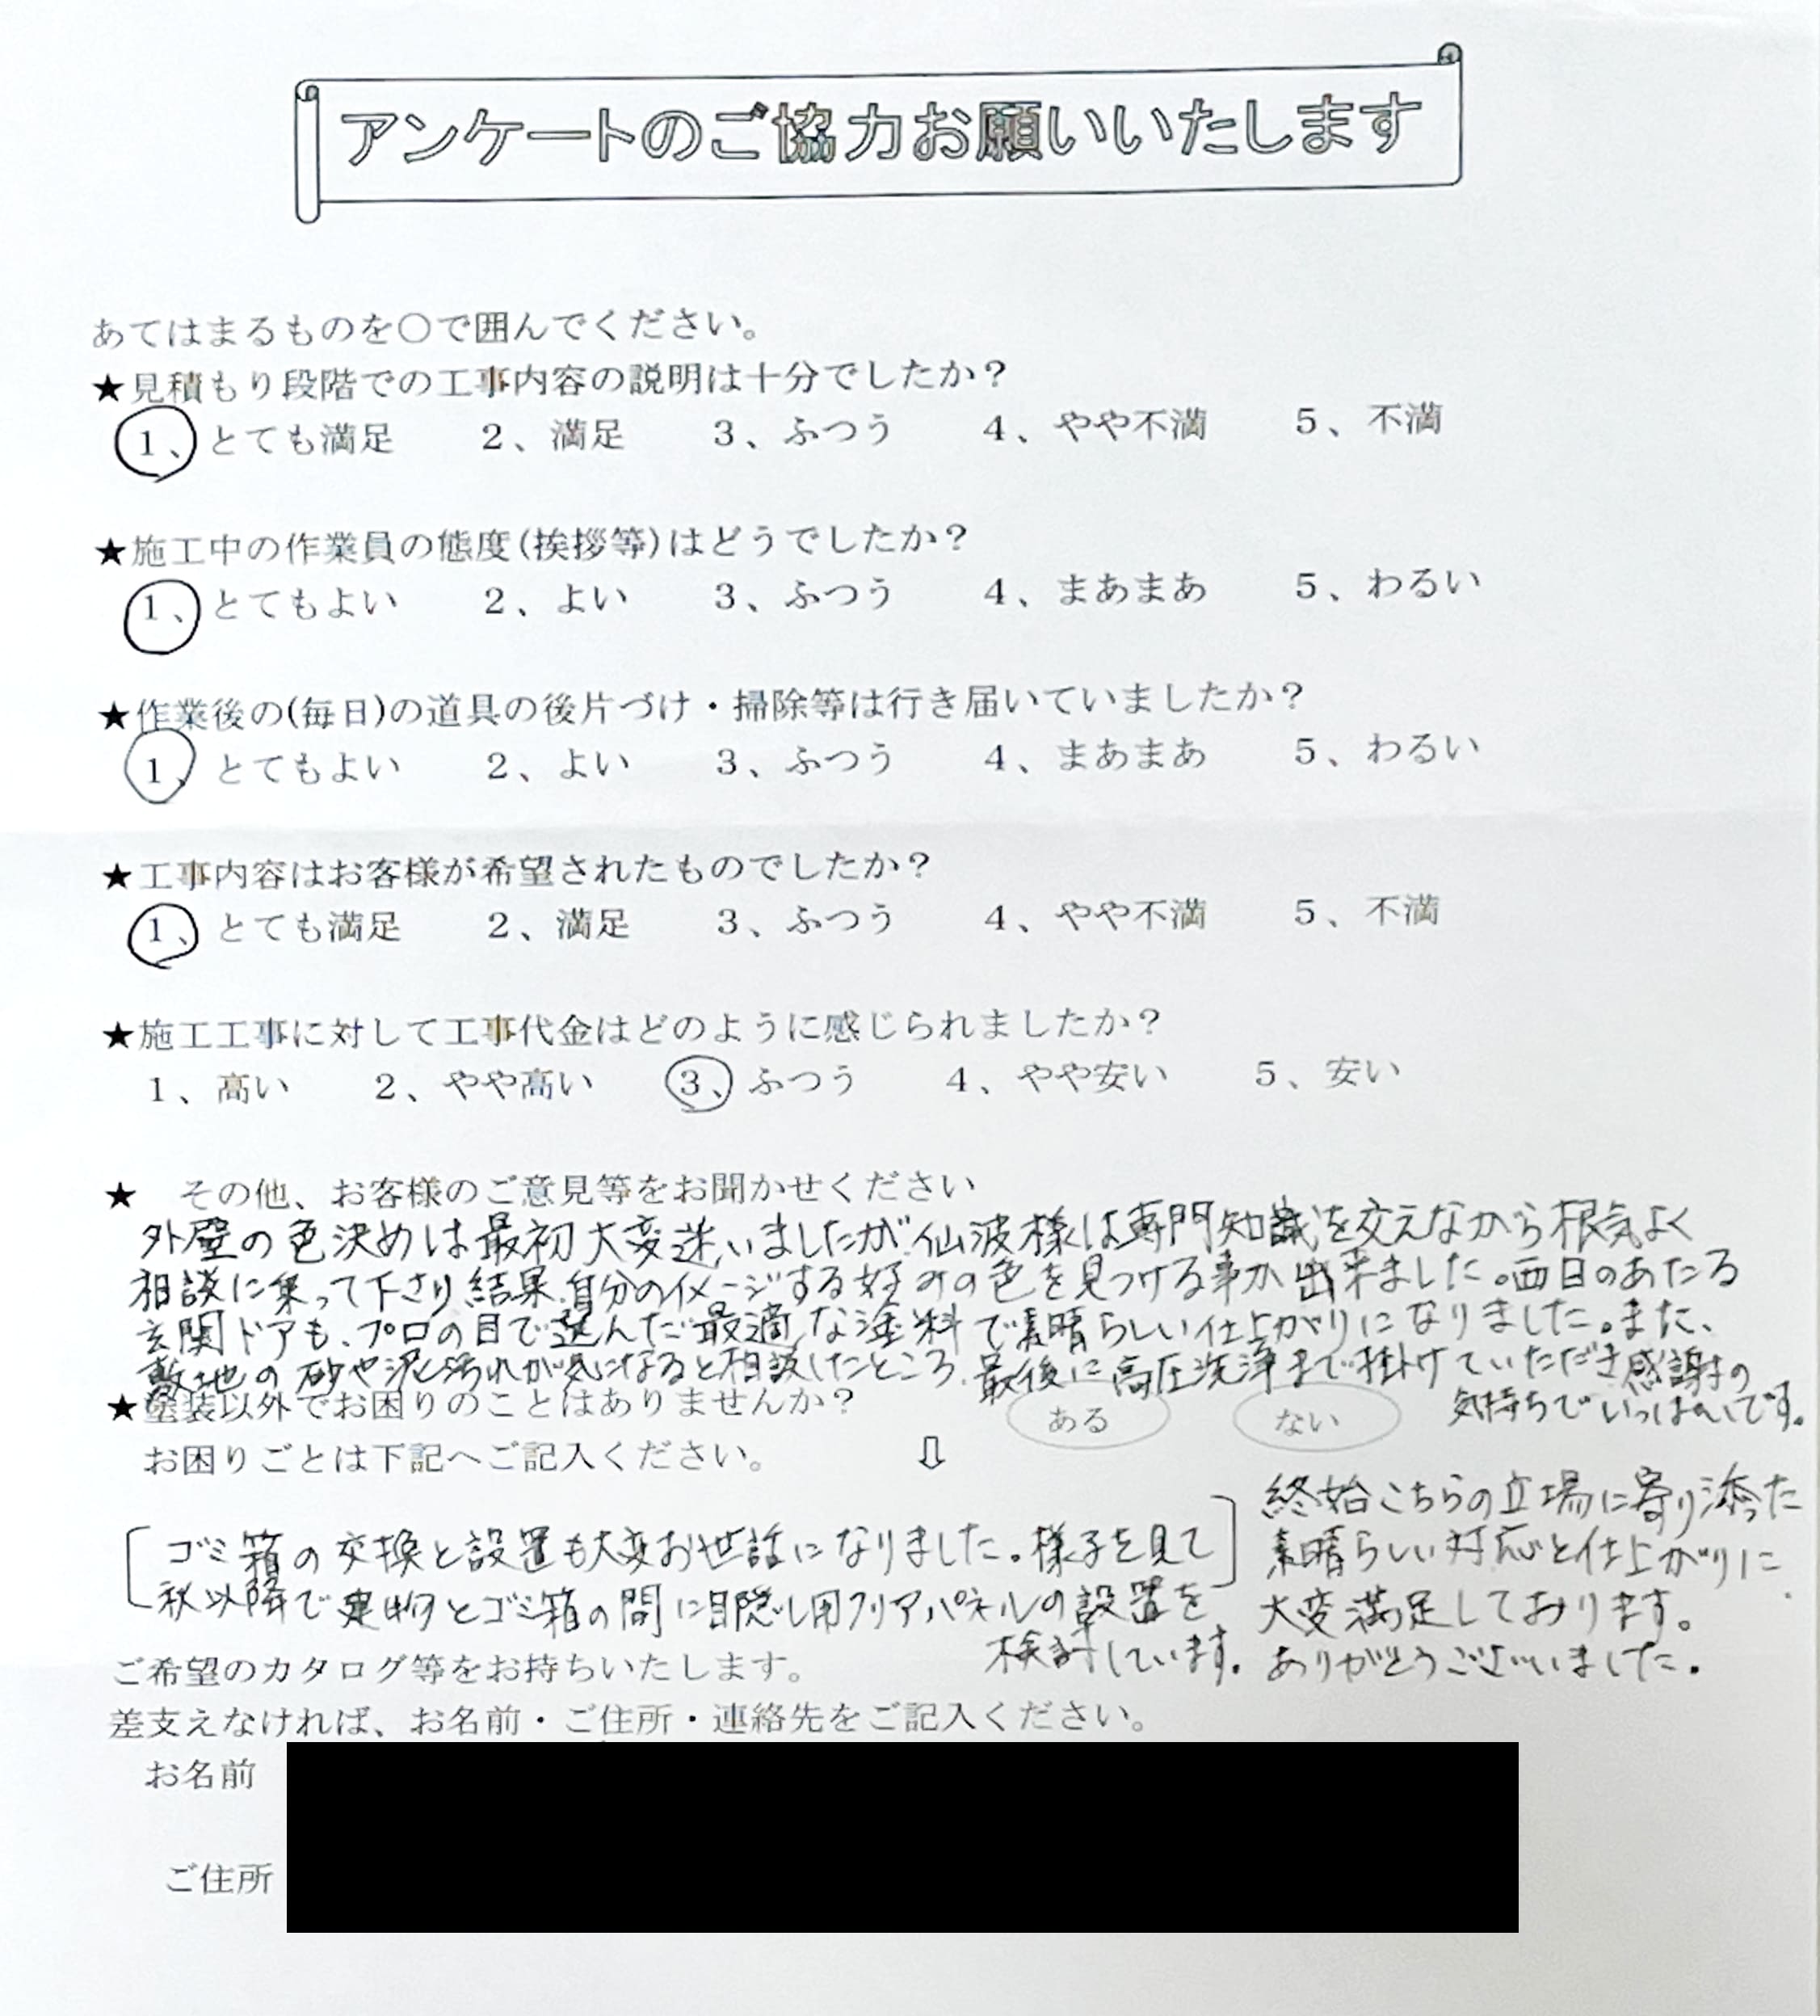 アンケートのご協力お願いいたします
あてはまるものを〇で囲んでください。
★見積もり段階での工事内容の説明は十分でしたか？
1、とても満足　2、満足　3、ふつう　4、やや不満　5、不満
★施工中の作業員の態度(挨拶等)はどうでしたか？
1、とてもよい　2、よい　3、ふつう　4、まあまあ　5、わるい
★作業後の(毎日)の道具の後片づけ・掃除等は行き届いていましたか？
1、とてもよい　2、よい　3、ふつう　4、まあまあ　5、わるい
★工事内容はお客様が希望されたものでしたか？
1、とても満足　2、満足　3、ふつう　4、やや不満　5、不満
★施工工事に対して工事代金はどのように感じられましたか？
1、高い　2、やや高い　3、ふつう　4、やや安い　5、安い
★　その他、お客様のご意見等をお聞かせください
外壁の色決めは最初大変迷いましたが、仙波様は専門知識を交えながら根気よく
相談に乗って下さり結果、自分のイメージする好みの色を見つける事が出来ました。西日のあたる
玄関ドアも、プロの目で選んだ最適な塗料で素晴らしい仕上がりになりました。また、
敷地の砂や泥と汚れが気になると相談したところ、最後に高圧洗浄まで掛けていただき感謝の
気持ちでいっぱいです。
★塗装以外でお困りのことはありませんか？　ある　ない
お困りごとは下記へご記入ください。　⇩
ゴミ箱の交換と設置も大変お世話になりました。様子を見て
秋以降で建物とゴミ箱の間に目隠し用クリアパネルの設置を
検討しています。
終始こちらの立場に寄り添った
素晴らしい対応と仕上がりに
大変満足しております。
ありがとうございました。
ご希望のカタログ等をお持ちいたします。
差支えなければ、お名前・ご住所・連絡先をご記入ください。
お名前
ご住所